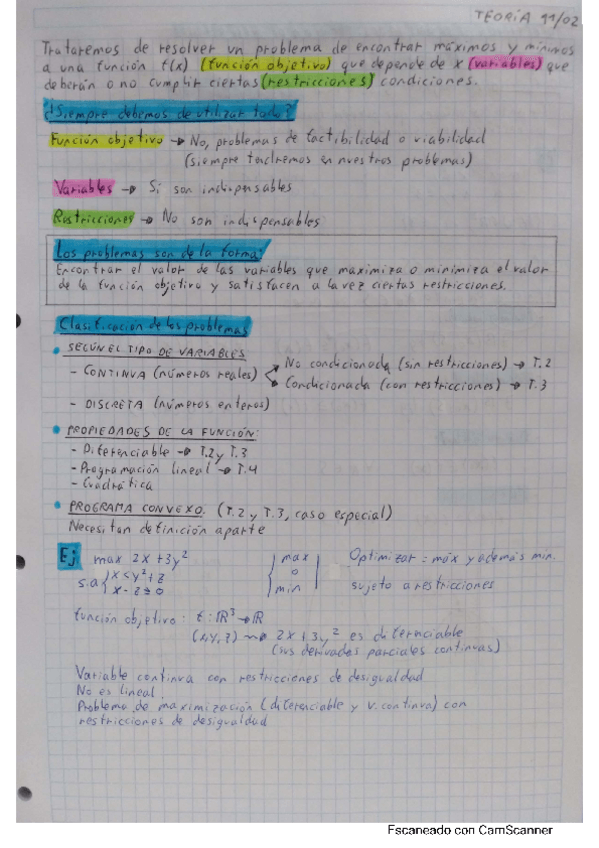 TEORÍA 11/02
Trataremos de resolver un problema de encontrar máximos y mínimos
a una función f(x) (función objetivo) que depende de x (variables) que
deberán o no cumplir ciertas (restricciones) condiciones.
¿Siempre debemos de utilizar todo?
Función objetivo → No, problemas de factibilidad o viabilidad
(siempre tendremos en nuestros problemas)
Variables → Sí son indispensables
Restricciones → No son indispensables
Los problemas son de la forma:
Encontrar el valor de las variables que maximiza o minimiza el valor
de la función objetivo y satisfacen a la vez ciertas restricciones.
Clasificación de los problemas
• SEGÚN EL TIPO DE VARIABLES
- CONTINUA (números reales)
No condicionada (sin restricciones) → T.2
Condicionada (con restricciones) → T.3
- DISCRETA (números enteros)
• PROPIEDADES DE LA FUNCIÓN:
- Diferenciable → T.2 y T.3
- Programación lineal → T.4
- Cuadrática
• PROGRAMA CONVEXO. (T.2 y T.3, caso especial)
Necesitan definición aparte
Ej: max 2x+3y²
s.a { x ≤ y²+z
x-z ≥ 0
{ max
o
min |
Optimizar = máx y además min.
sujeto a restricciones
función objetivo: f: ℝ³ → ℝ
(x,y,z) ⇝ 2x+3y² es diferenciable
(sus derivadas parciales continuas)
Variable continua con restricciones de desigualdad
No es lineal.
Problema de maximización (diferenciable y v. continua) con
restricciones de desigualdad
Escaneado con CamScanner